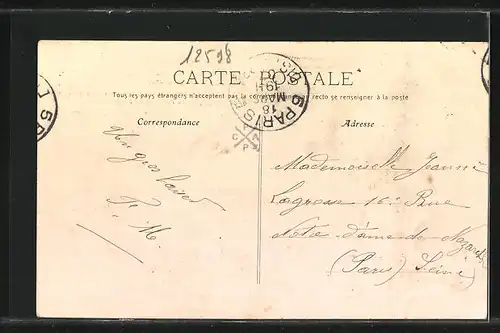 12598
CARTE POSTALE
Tous les pays étrangers n'acceptent pas la correspondance au recto se renseigner à la poste
Correspondance
Adresse
PARIS
18
MARS
Un gros baiser
F. M
Mademoiselle Jeanne
16 Rue
Notre dame de Nazareth
(Paris) Seine